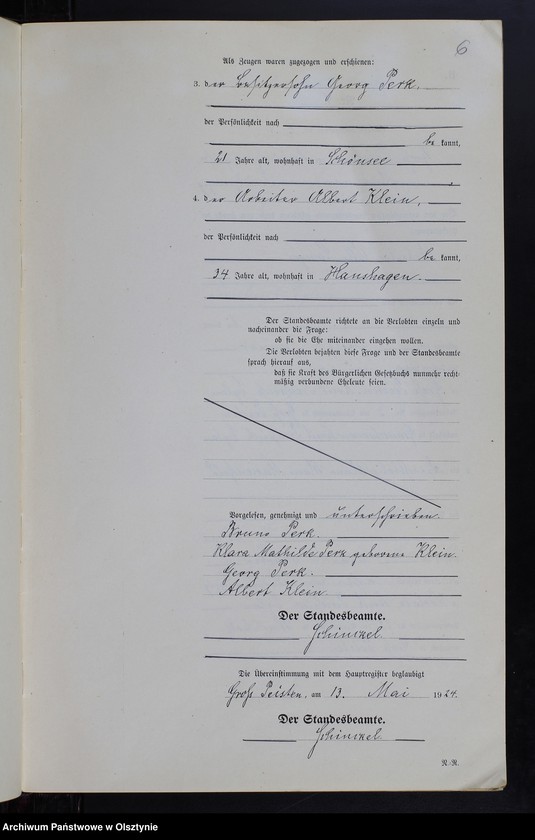 6
Als Zeugen waren zugezogen und erschienen:
3. der Besitzersohn Georg Perk,
der Persönlichkeit nach
be kannt,
21 Jahre alt, wohnhaft in Schönsee
4. der Arbeiter Albert Klein,
der Persönlichkeit nach
be kannt,
34 Jahre alt, wohnhaft in Hanshagen.
Der Standesbeamte richtete an die Verlobten einzeln und
nacheinander die Frage:
ob sie die Ehe miteinander eingehen wollen.
Die Verlobten bejahten diese Frage und der Standesbeamte
sprach hierauf aus,
daß sie kraft des Bürgerlichen Gesetzbuchs nunmehr recht-
mäßig verbundene Eheleute seien.
Vorgelesen, genehmigt und unterschrieben.
Bruno Perk.
Klara Mathilde Perk geborene Klein.
Georg Perk.
Albert Klein
Der Standesbeamte.
Schinkel
Die Übereinstimmung mit dem Hauptregister beglaubigt
Groß Peisten, am 13. Mai 1924.
Der Standesbeamte.
Schinkel
R.-R.
Archiwum Państwowe w Olsztynie